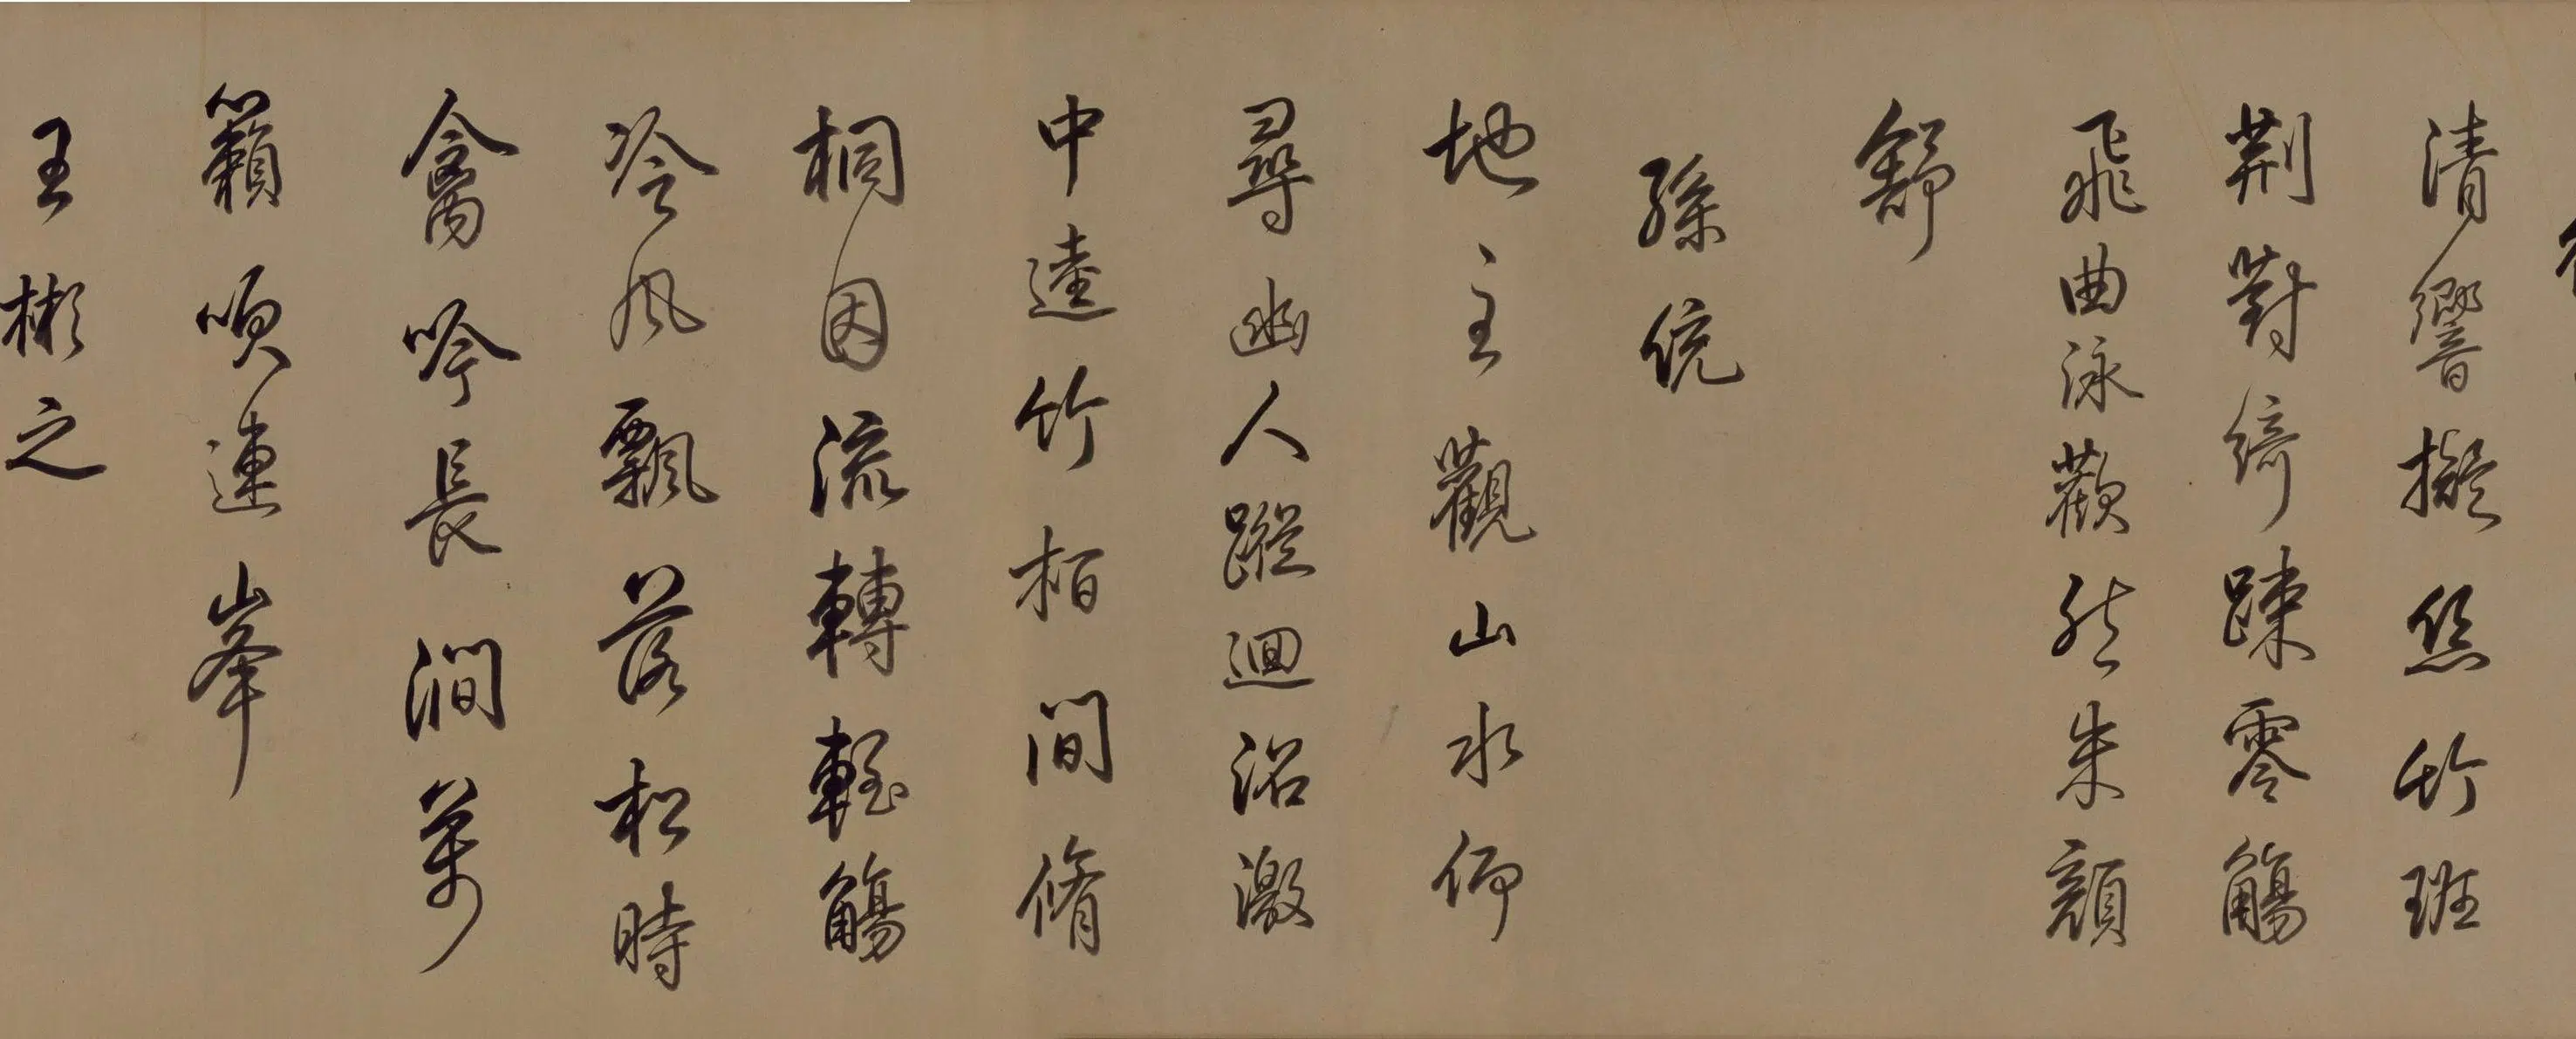 清響擬絲竹班
荆對綺踈零觴
飛曲泳歡然朱顔
舒
孫統
地主觀山水仰
尋幽人蹤迴沼激
中逵竹栢間脩
桐因流轉輕觴
冷風飄落松時
禽吟長澗萬
籟吹連峯
王彬之